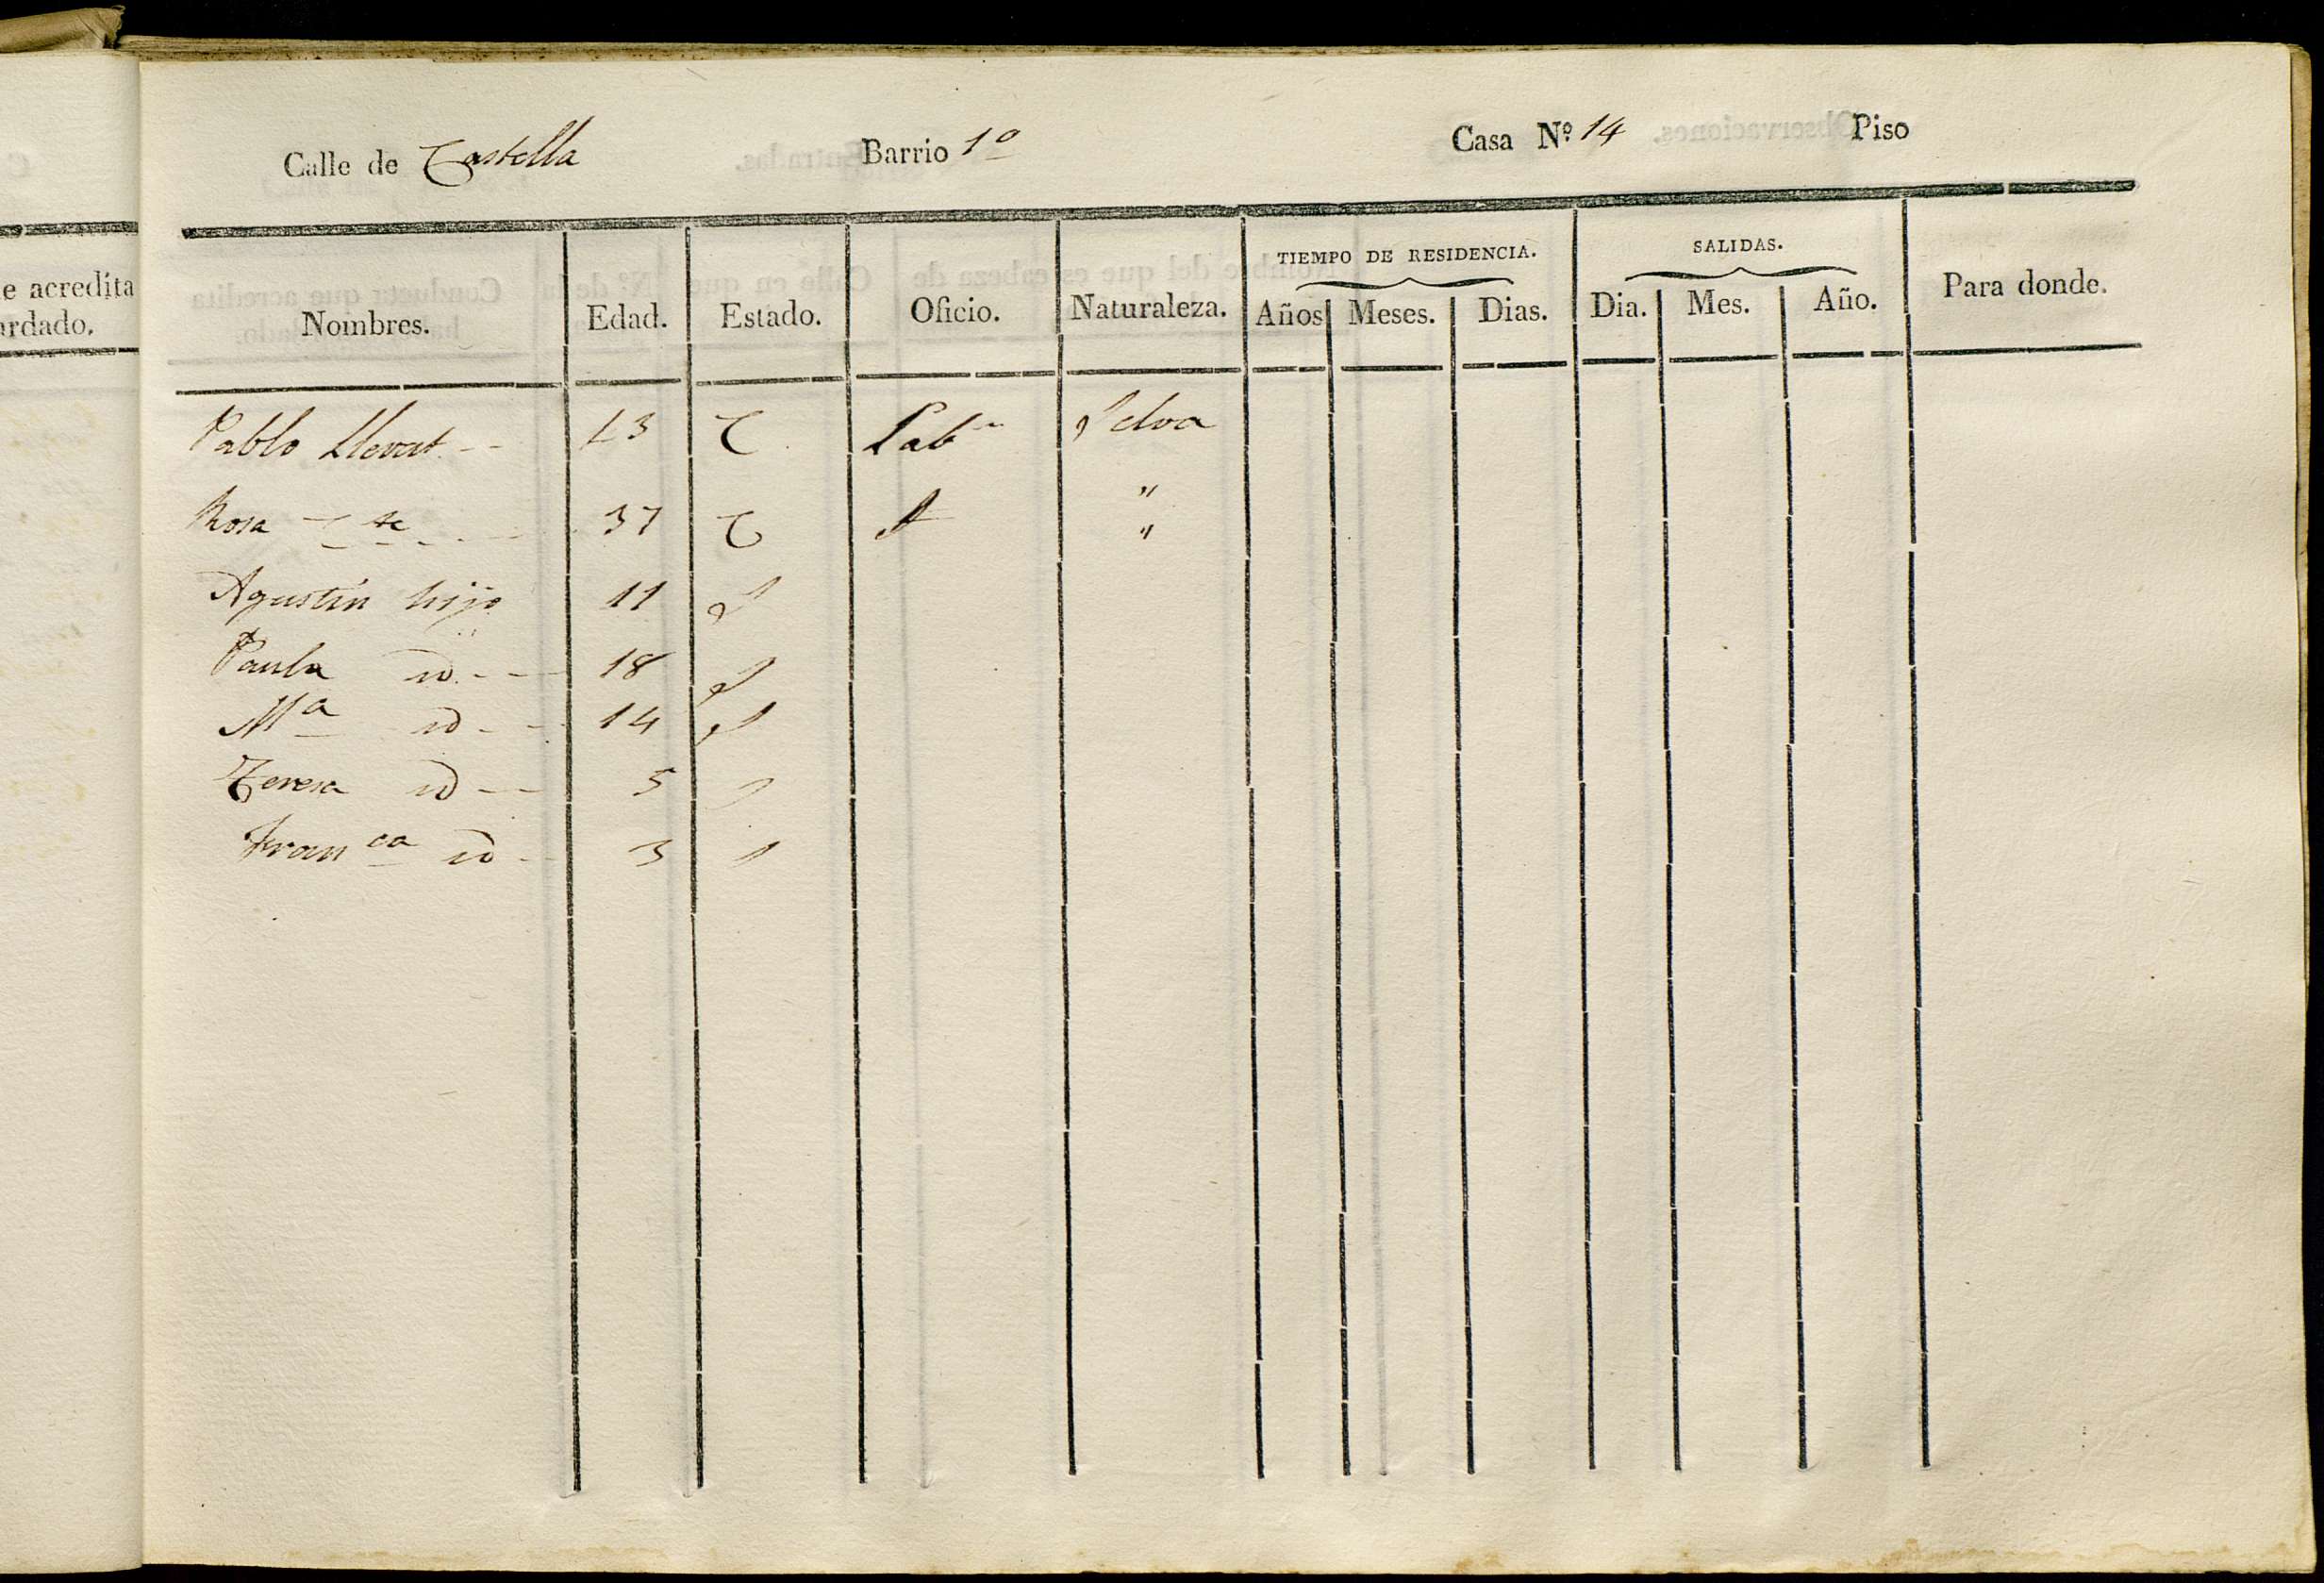 e acredita
ardado.
Calle de Castella Barrio 1º Casa Nº 14 Piso
Nombres. Edad. Estado. Oficio. Naturaleza. TIEMPO DE RESIDENCIA. Años Meses. Dias. SALIDAS. Dia. Mes. Año. Para donde.
Pablo Llevat 43 C Labr Selva
Rosa 37 C "
"
Agustin hijo 11 S
Paula id. 18 S
Mª id 14 S
Teresa id 5 S
Franca id 3 S